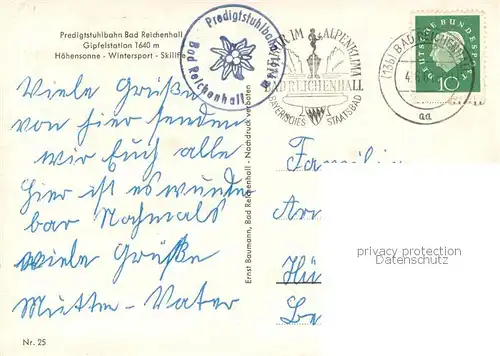 Predigtstuhlbahn Bad Reichenhall
Gipfelstation 1640 m
Höhensonne - Wintersport - Skilifte
Predigtstuhlbahn
Bad Reichenhall
IM ALPENKLIMA
BAD REICHENHALL
BAYERISCHES STAATSBAD
(13b) BAD REICHENHALL
aa
DEUTSCHE BUNDESPOST
10
Viele Grüße
von hier senden
wir Euch alle
hier ist es wunder
bar Nochmals
viele Grüße
Mutter - Vater
Ernst Baumann, Bad Reichenhall - Nachdruck verboten
Familie
privacy protection
Datenschutz
Nr. 25